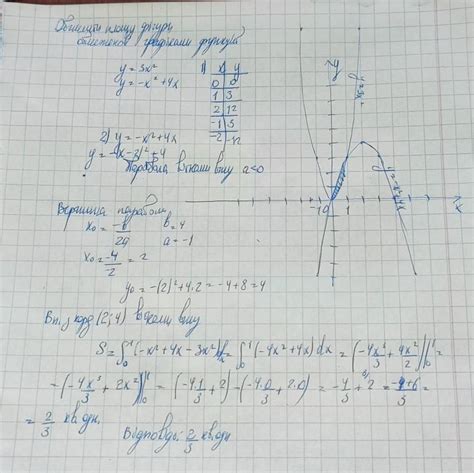 Обчислити площу фігури
обмеженої графіками функцій
y = 3x²
y = -x² + 4x
1) x | y
0 | 0
1 | 3
2 | 12
-1 | 3
-2 | -12
2) y = -x² + 4x
y = -(x-2)² + 4
Парабола вітками вниз a<0
Вершина параболи
x₀ = -b/2a b = 4
a = -1
x₀ = -4/2 = 2
y₀ = -(2)² + 4·2 = -4+8 = 4
В т. з коорд (2; 4) вітками вниз
S = ∫₀¹ (-x² + 4x - 3x²) dx = ∫₀¹ (-4x² + 4x) dx = (-4x³/3 + 4x²/2) |₀¹ =
= (-4x³/3 + 2x²) |₀¹ = (-4·1/3 + 2) - (-4·0/3 + 2·0) = -4/3 + 2 = -4+6/3 =
= 2/3 кв.одн.
Відповідь: 2/3 кв.одн
y
y = 3x²
y = -x² + 4x
-1 0 1
x